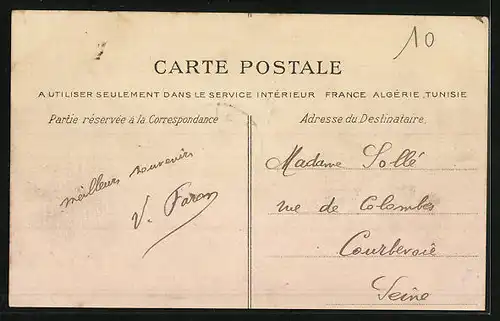 10
CARTE POSTALE
A UTILISER SEULEMENT DANS LE SERVICE INTÉRIEUR FRANCE ALGÉRIE, TUNISIE
Partie réservée à la Correspondance
meilleurs souvenirs
V. Faron
Adresse du Destinataire.
Madame Sollé
rue de Colombes
Courbevoie
Seine